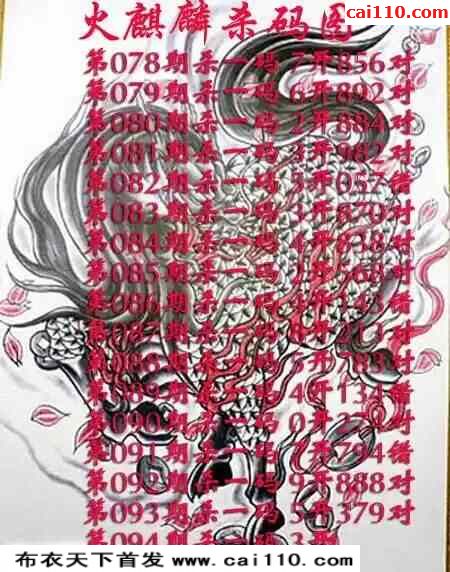 cai110.com
火麒麟杀码图
第078期杀一码7开856对
第079期杀一码6开892对
第080期杀一码2开884对
第081期杀一码3开982对
第082期杀一码5开057错
第083期杀一码3开870对
第084期杀一码4开638对
第085期杀一码2开568对
第086期杀一码 开143错
第087期杀一码 开 对
第088期杀一码5开783对
第089期杀一码4开134错
第090期杀一码0开 对
第091期杀一码7开794错
第092期杀一码9开888对
第093期杀一码5开379对
第094期杀一码3开
布衣天下首发 www.cai110.com